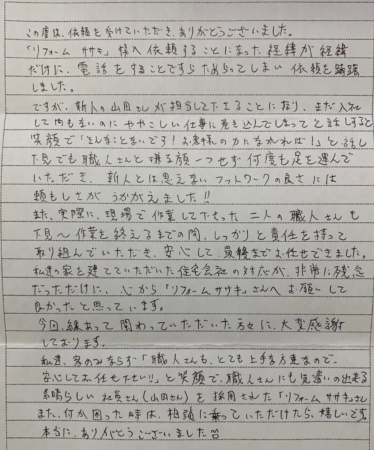 この度は、依頼を受けていただき、ありがとうございました。
「リフォーム ササキ」様へ依頼することになった経緯が経緯
だけに、電話をすることですらためらってしまい 依頼を躊躇
しました。
ですが、新人の山田さんが担当して下さることになり、まだ入社
して間もないのに ややこしい仕事に巻き込んでしまって と話しすると
笑顔で「とんでもないです！お客様の力になれれば！」と話し
下見でも職人さんと嫌な顔一つせず何度も足を運んで
いただき、新人とは思えない フットワークの良さには
頼もしさが うかがえました!!
また、実際に、現場で作業して下さった 二人の職人さんも
下見〜作業を終えるまでの間、しっかりと責任を持って
取り組んでいただき、安心して、最後までお任せできました。
私達の家を建てていただいた住宅会社の対応が、非常に残念
だっただけに、心から「リフォームササキ」さんへお願いして
良かったと思っています。
今回、縁あって 関わっていただいた方々に、大変感謝
しております。
私達、客のみならず「職人さんも、とても上手な方達なので、
安心してお任せ下さい!」と笑顔で、職人さんにも気遣いの出来る
素晴らしい 社員さん(山田さん)を 採用された「リフォームササキ」さん
また、何か困った時は、相談に乗っていただけたら、嬉しいです。
本当に、ありがとうございました